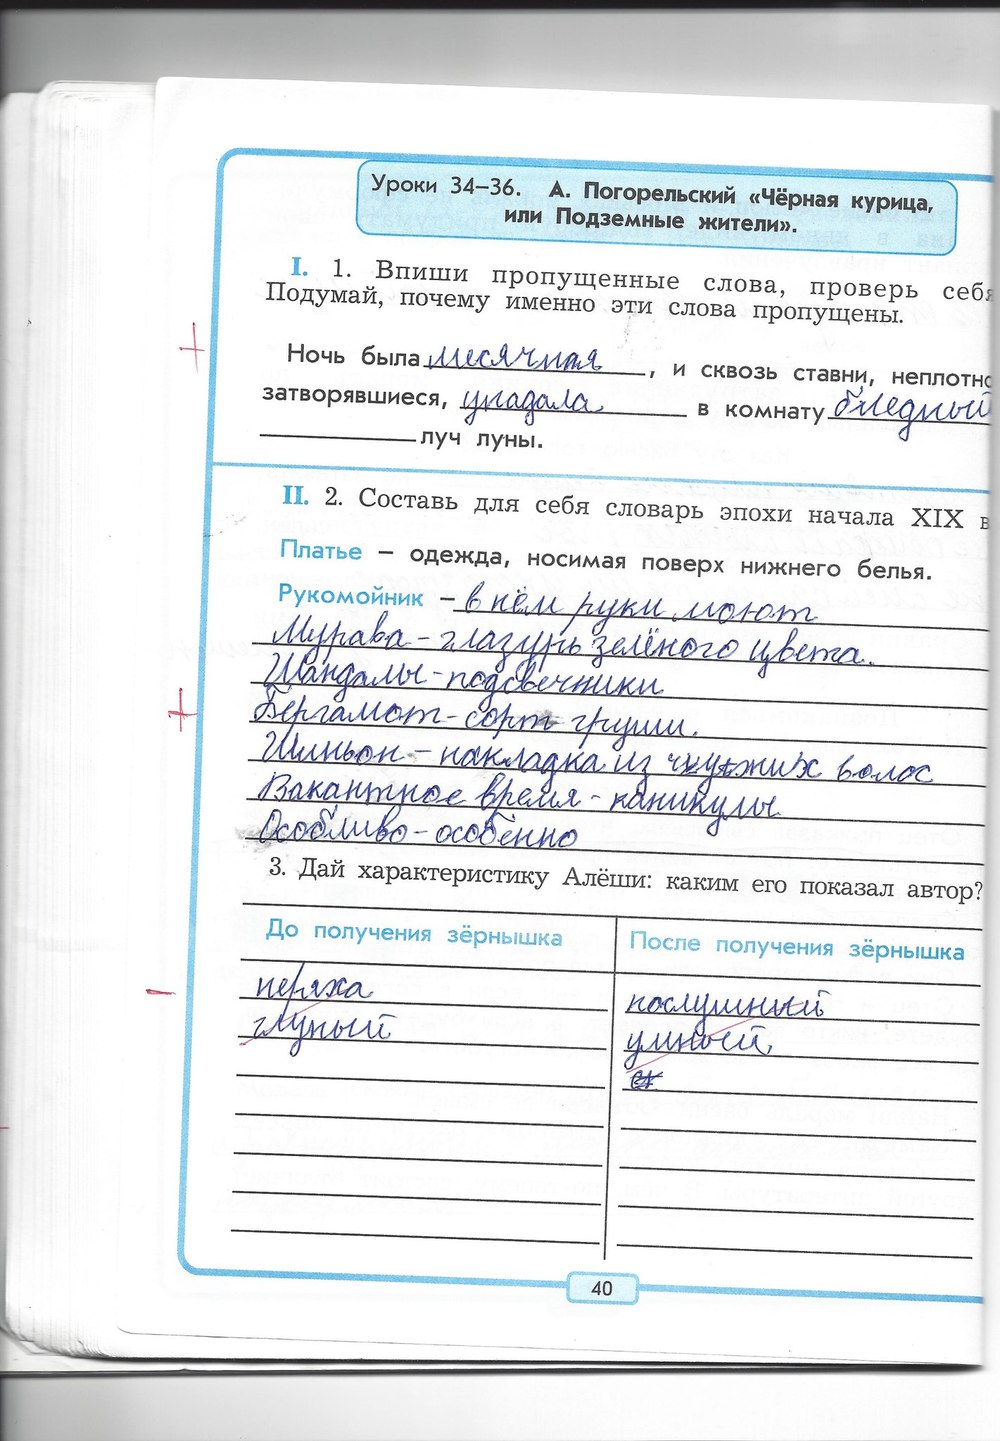 Уроки 34–36. А. Погорельский «Чёрная курица,
или Подземные жители».
I. 1. Впиши пропущенные слова, проверь себя
Подумай, почему именно эти слова пропущены.
Ночь была месячная, и сквозь ставни, неплотно
затворявшиеся, упадала в комнату бледный
луч луны.
II. 2. Составь для себя словарь эпохи начала XIX в
Платье – одежда, носимая поверх нижнего белья.
Рукомойник – в нём руки моют
Мурава - глазурь зелёного цвета.
Шандалы - подсвечники
Бергамот - сорт груши.
Шиньон - накладка из чужих волос
Вакантное время - каникулы
Особливо - особенно
3. Дай характеристику Алёши: каким его показал автор?
До получения зёрнышка
После получения зёрнышка
неряха
послушний
глупый
умный,
40